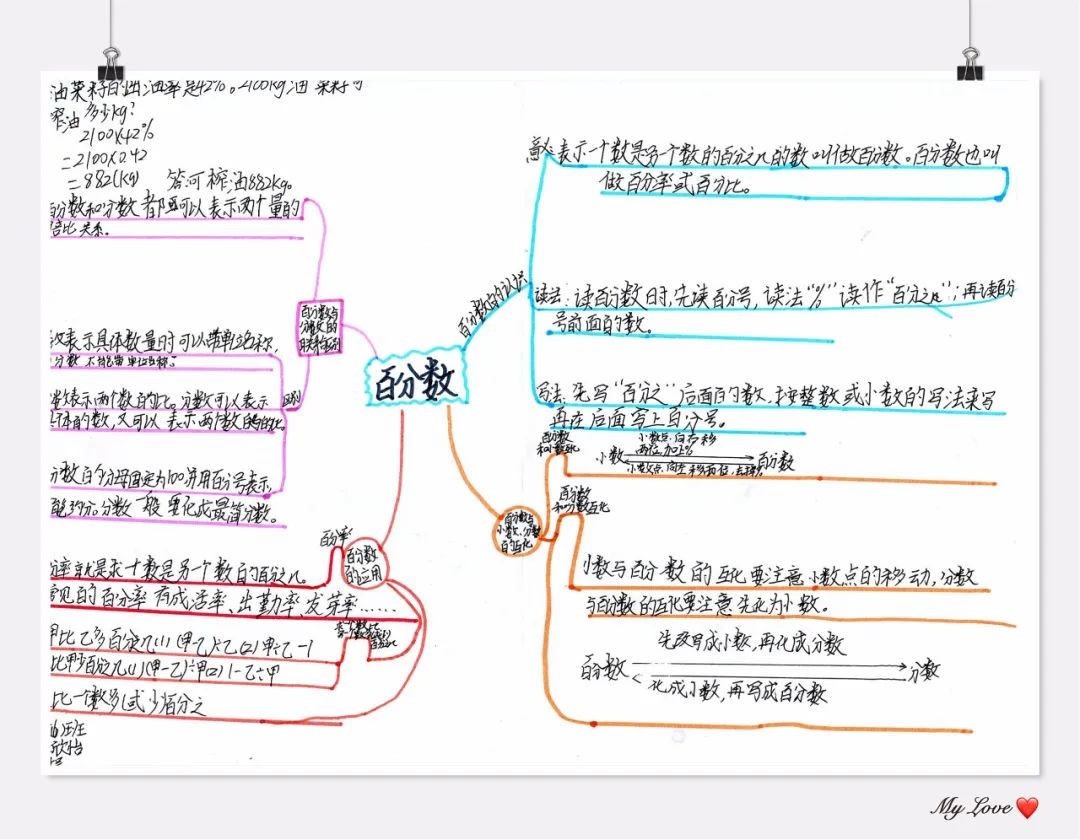 油菜籽的出油率是42%。2100kg油菜籽可
榨油多少kg?
2100×42%
=2100×0.42
=882(kg) 答:可榨油882kg。
百分数和分数都可以表示两个量的
倍比关系。
百分数与
分数的
联系和区别
表示具体数量时可以带单位名称,
分数不可能带单位名称。
区别
数表示两个数的比。分数可以表示
体的数,又可以表示两个数的比。
分数的分母固定为100并用百分号表示,
能约分。分数一般要化成最简分数。
百分数
百分数的认识
意义:表示一个数是另一个数的百分之几的数叫做百分数。百分数也叫
做百分率或百分比。
读法:读百分数时,先读百分号,读法"%"读作"百分之";再读百分
号前面的数。
写法:先写"百分之"后面的数,按整数或小数的写法来写
再在后面写上百分号。
百分数与
小数、分数
的互化
百分数
和小数互化
小数点向右移
两位,加上%
小数 百分数
小数点向左移两位,去掉%
百分数
和分数互化
小数与百分数的互化要注意小数点的移动,分数
与百分数的互化要注意先化为小数。
先改写成小数,再化成分数
百分数 分数
化成小数,再写成百分数
百分数
的应用
百分率
分率就是求一个数是另一个数的百分之几。
常见的百分率有成活率、出勤率、发芽率……
甲比乙多百分之几(1)(甲-乙)÷乙(2)甲÷乙-1
比甲少百分之几(1)(甲-乙)÷甲(2)1-乙÷甲
比一个数多(或少)百分之
欣怡
My Love